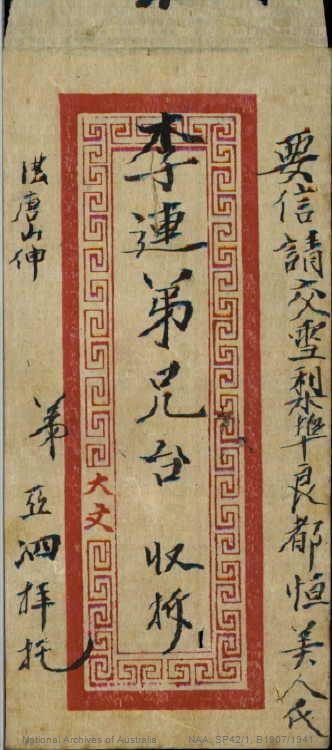 要信請交雪梨埠良都恒美人氏
李連弟兄台 收拆
大文
唐山伸
弟 亞泗拜托
National Archives of Australia
NAA: SP42/1, B1907/1941